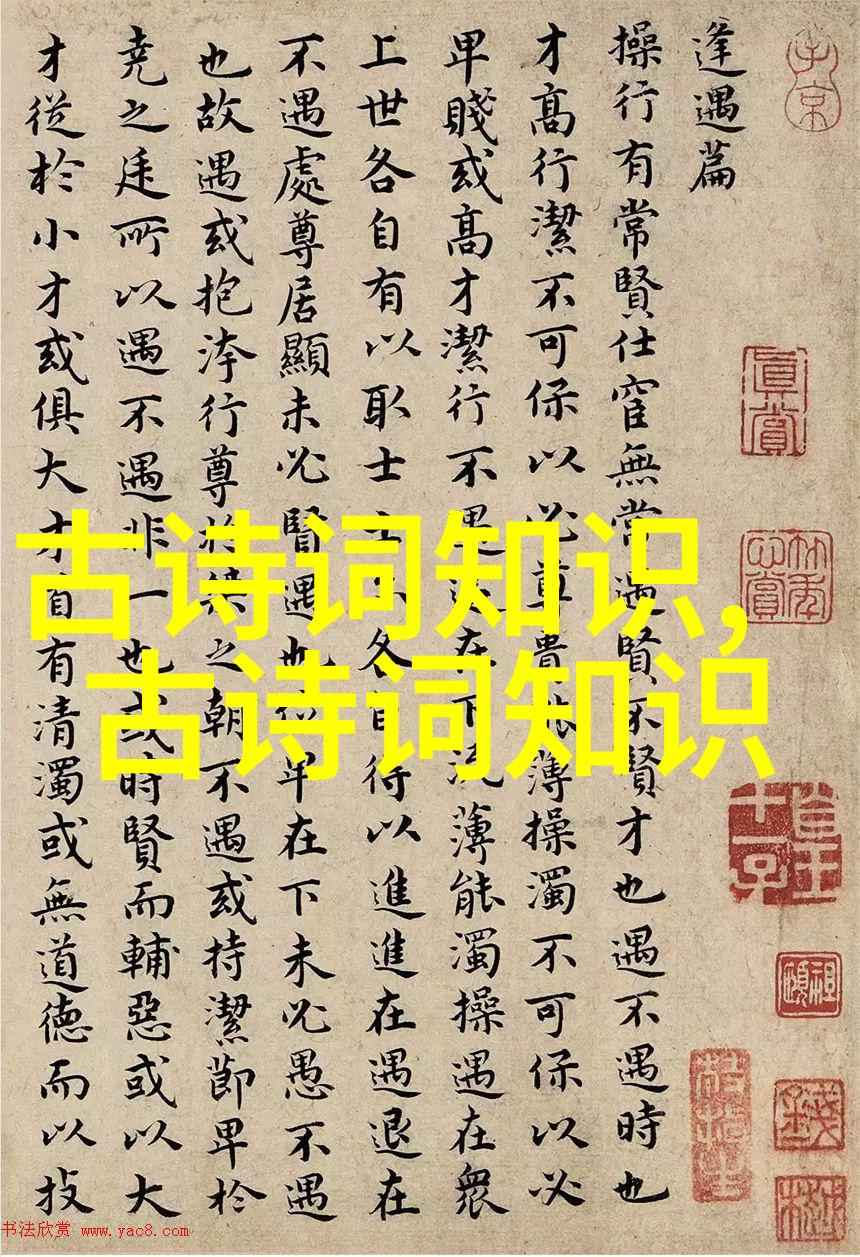 逢遇篇
操行有常賢仕宦無常遇賢不賢才也遇不遇時也
才高行潔不可保以必尊貴能薄操濁不可保以必
卑賤或高才潔行不遇退在下流薄能濁操遇在衆
上世各自有以取士士亦各自得以進進在遇退在
不遇處尊居顯未必賢遇也位卑在下未必愚不遇
也故遇或抱洿行尊於桀之朝不遇或持潔節卑於
堯之廷所以遇不遇非一也或時賢而輔惡或以大
才從於小才或俱大才自有清濁或無道德而以技
古诗词知识,
古诗词知识
真賞
书法欣赏 www.yac8.com